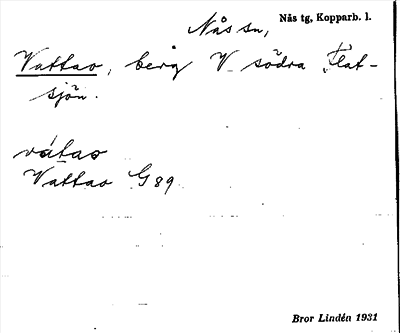 Nås sn, Nås tg, Kopparb. l.
Vattao, berg V södra Flat-
sjön.
våtao
Vattao G89
Bror Lindén 1931